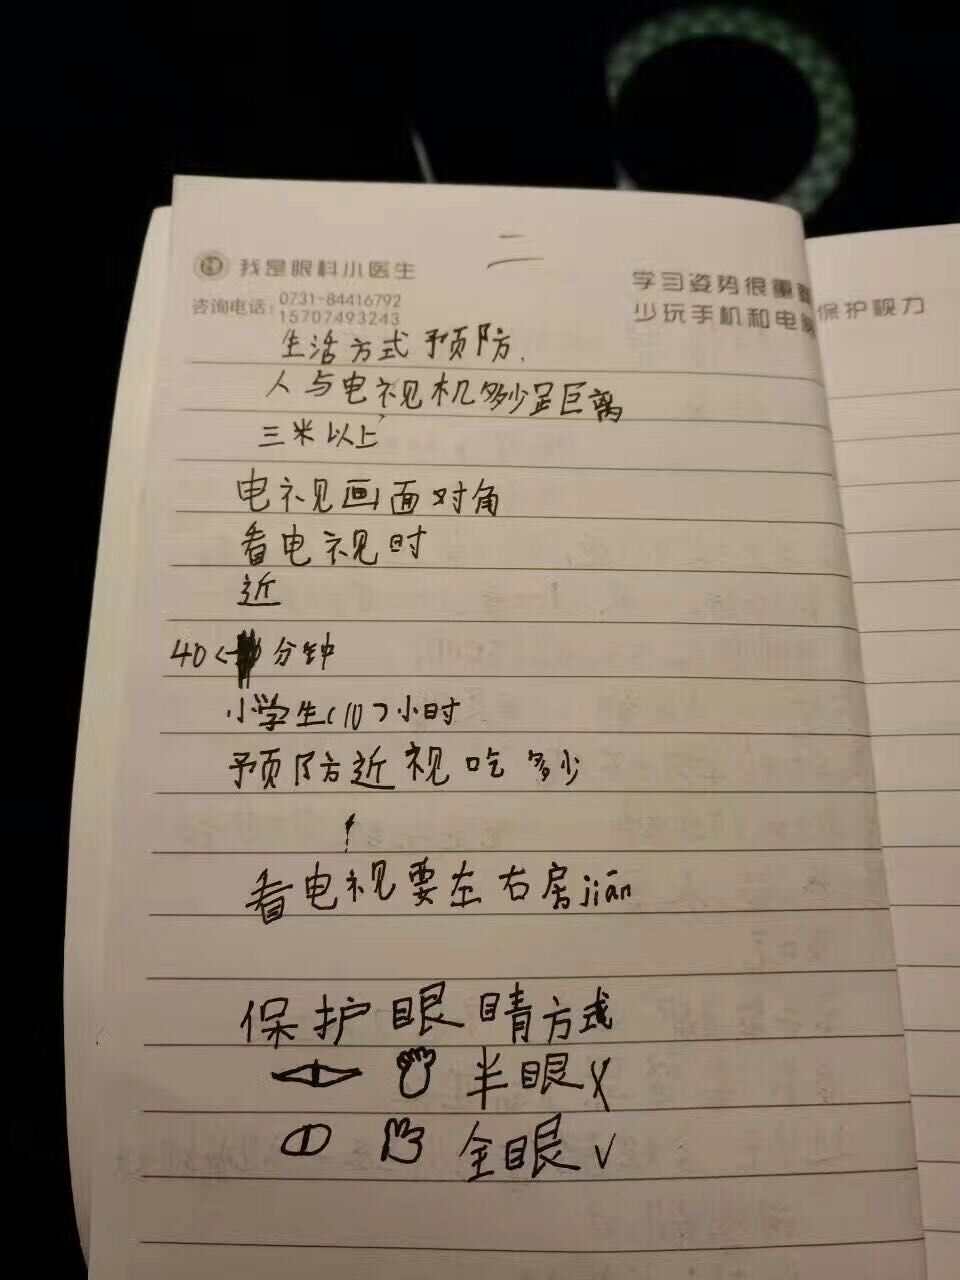 二
我是眼科小医生
咨询电话: 0731-84416792
15707493243
学习姿势很重
少玩手机和电 保护视力
生活方式预防.
人与电视机多少足巨离
三米以上
电视画面对角
看电视时
近
40< 分钟
小学生(10)小时
预防近视吃多少
看电视要左右房jiān
保护眼睛方式
半眼 X
全眼 √